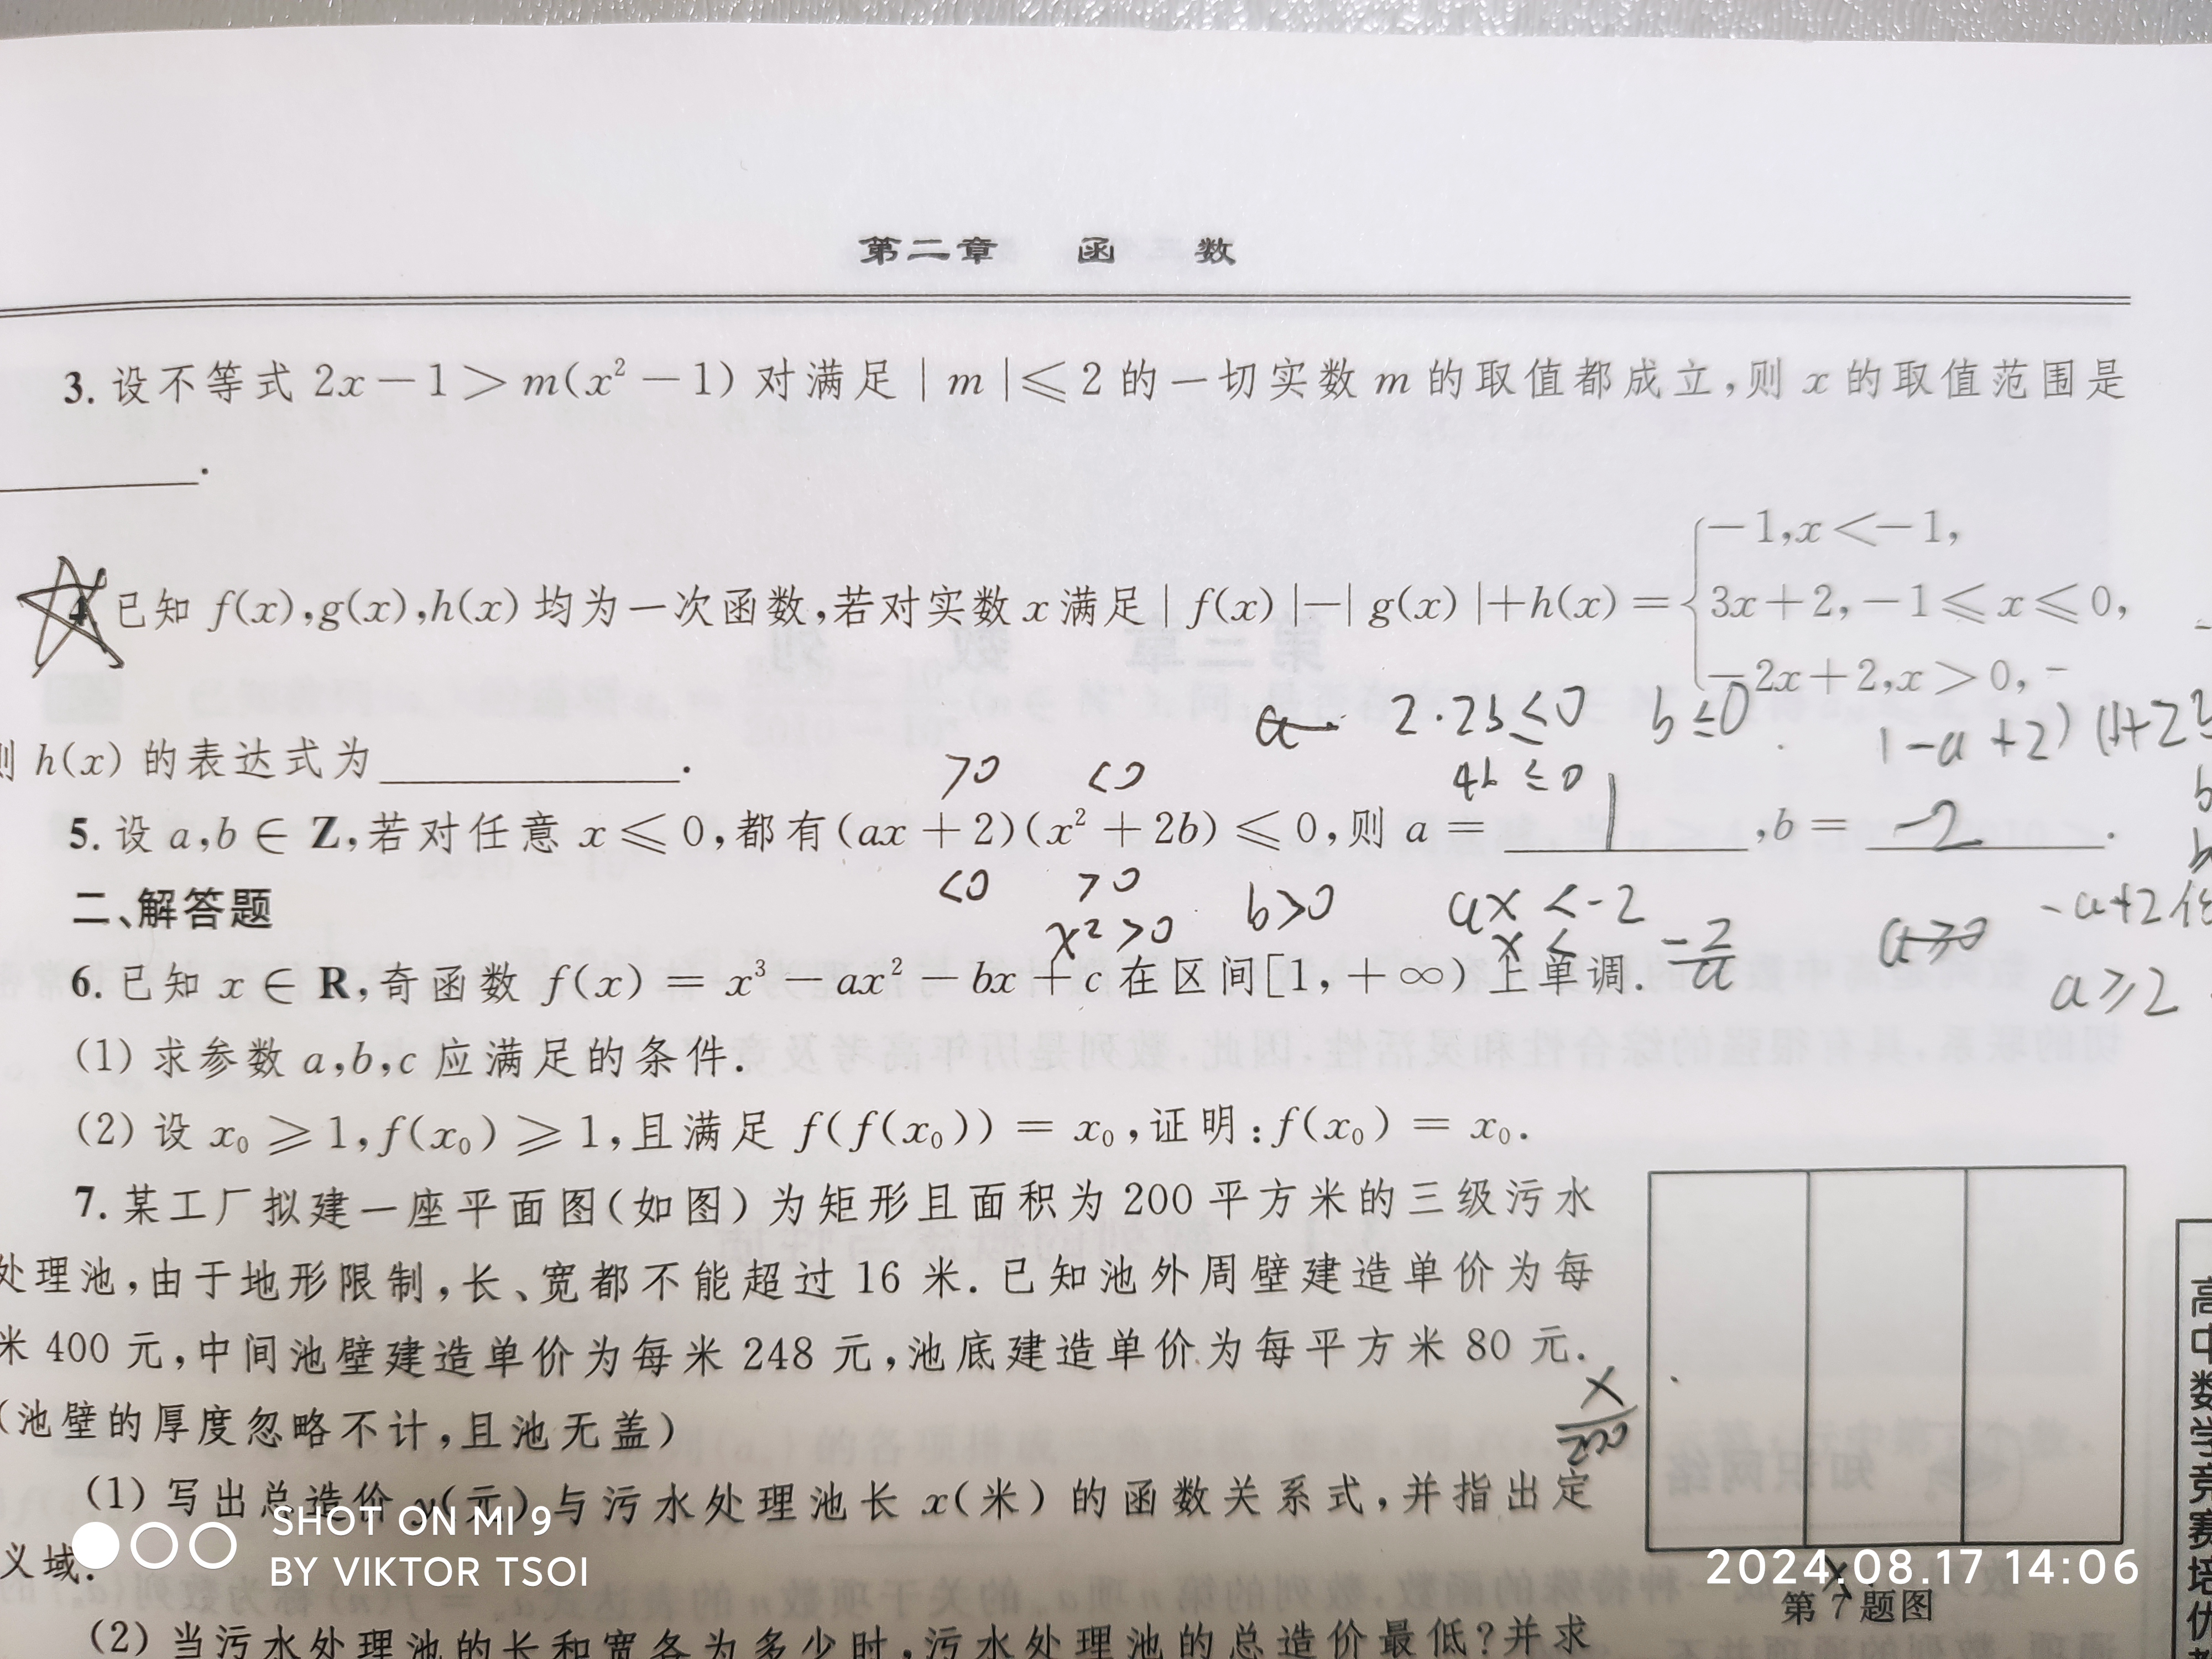 第二章 函 数
3. 设不等式 2x－1＞m(x²－1) 对满足 | m |≤2 的一切实数 m 的取值都成立,则 x 的取值范围是
________.
－1,x＜－1,
4. 已知 f(x),g(x),h(x) 均为一次函数,若对实数 x 满足 | f(x) |－| g(x) |＋h(x)＝{3x＋2,－1≤x≤0,
－2x＋2,x＞0,
2·2b≤0 b≤0
1-a+2)(1+2b
h(x) 的表达式为________.
>0 <0 4b≤0
5. 设 a,b∈Z,若对任意 x≤0,都有(ax＋2)(x²＋2b)≤0,则 a＝ 1 ,b＝ -2 .
<0 >0
二、解答题
x²>0 b>0 ax<-2 -a+2≤
x< -2/a a≥0
a≥2
6. 已知 x∈R,奇函数 f(x)＝x³－ax²－bx＋c 在区间[1,＋∞)上单调.
(1) 求参数 a,b,c 应满足的条件.
(2) 设 x₀≥1,f(x₀)≥1,且满足 f(f(x₀))＝x₀,证明:f(x₀)＝x₀.
7. 某工厂拟建一座平面图(如图)为矩形且面积为 200 平方米的三级污水
处理池,由于地形限制,长、宽都不能超过 16 米. 已知池外周壁建造单价为每
米 400 元,中间池壁建造单价为每米 248 元,池底建造单价为每平方米 80 元.
(池壁的厚度忽略不计,且池无盖)
200/x
(1) 写出总造价 y(元)与污水处理池长 x(米)的函数关系式,并指出定
义域.
x
第 7 题图
(2) 当污水处理池的长和宽各为多少时,污水处理池的总造价最低?并求
高中数学竞赛培优
SHOT ON MI 9
BY VIKTOR TSOI
2024.08.17 14:06